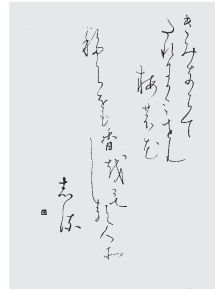 きみならて
たれにかみせん
梅の花
色をも香越も
しる人そ
しる